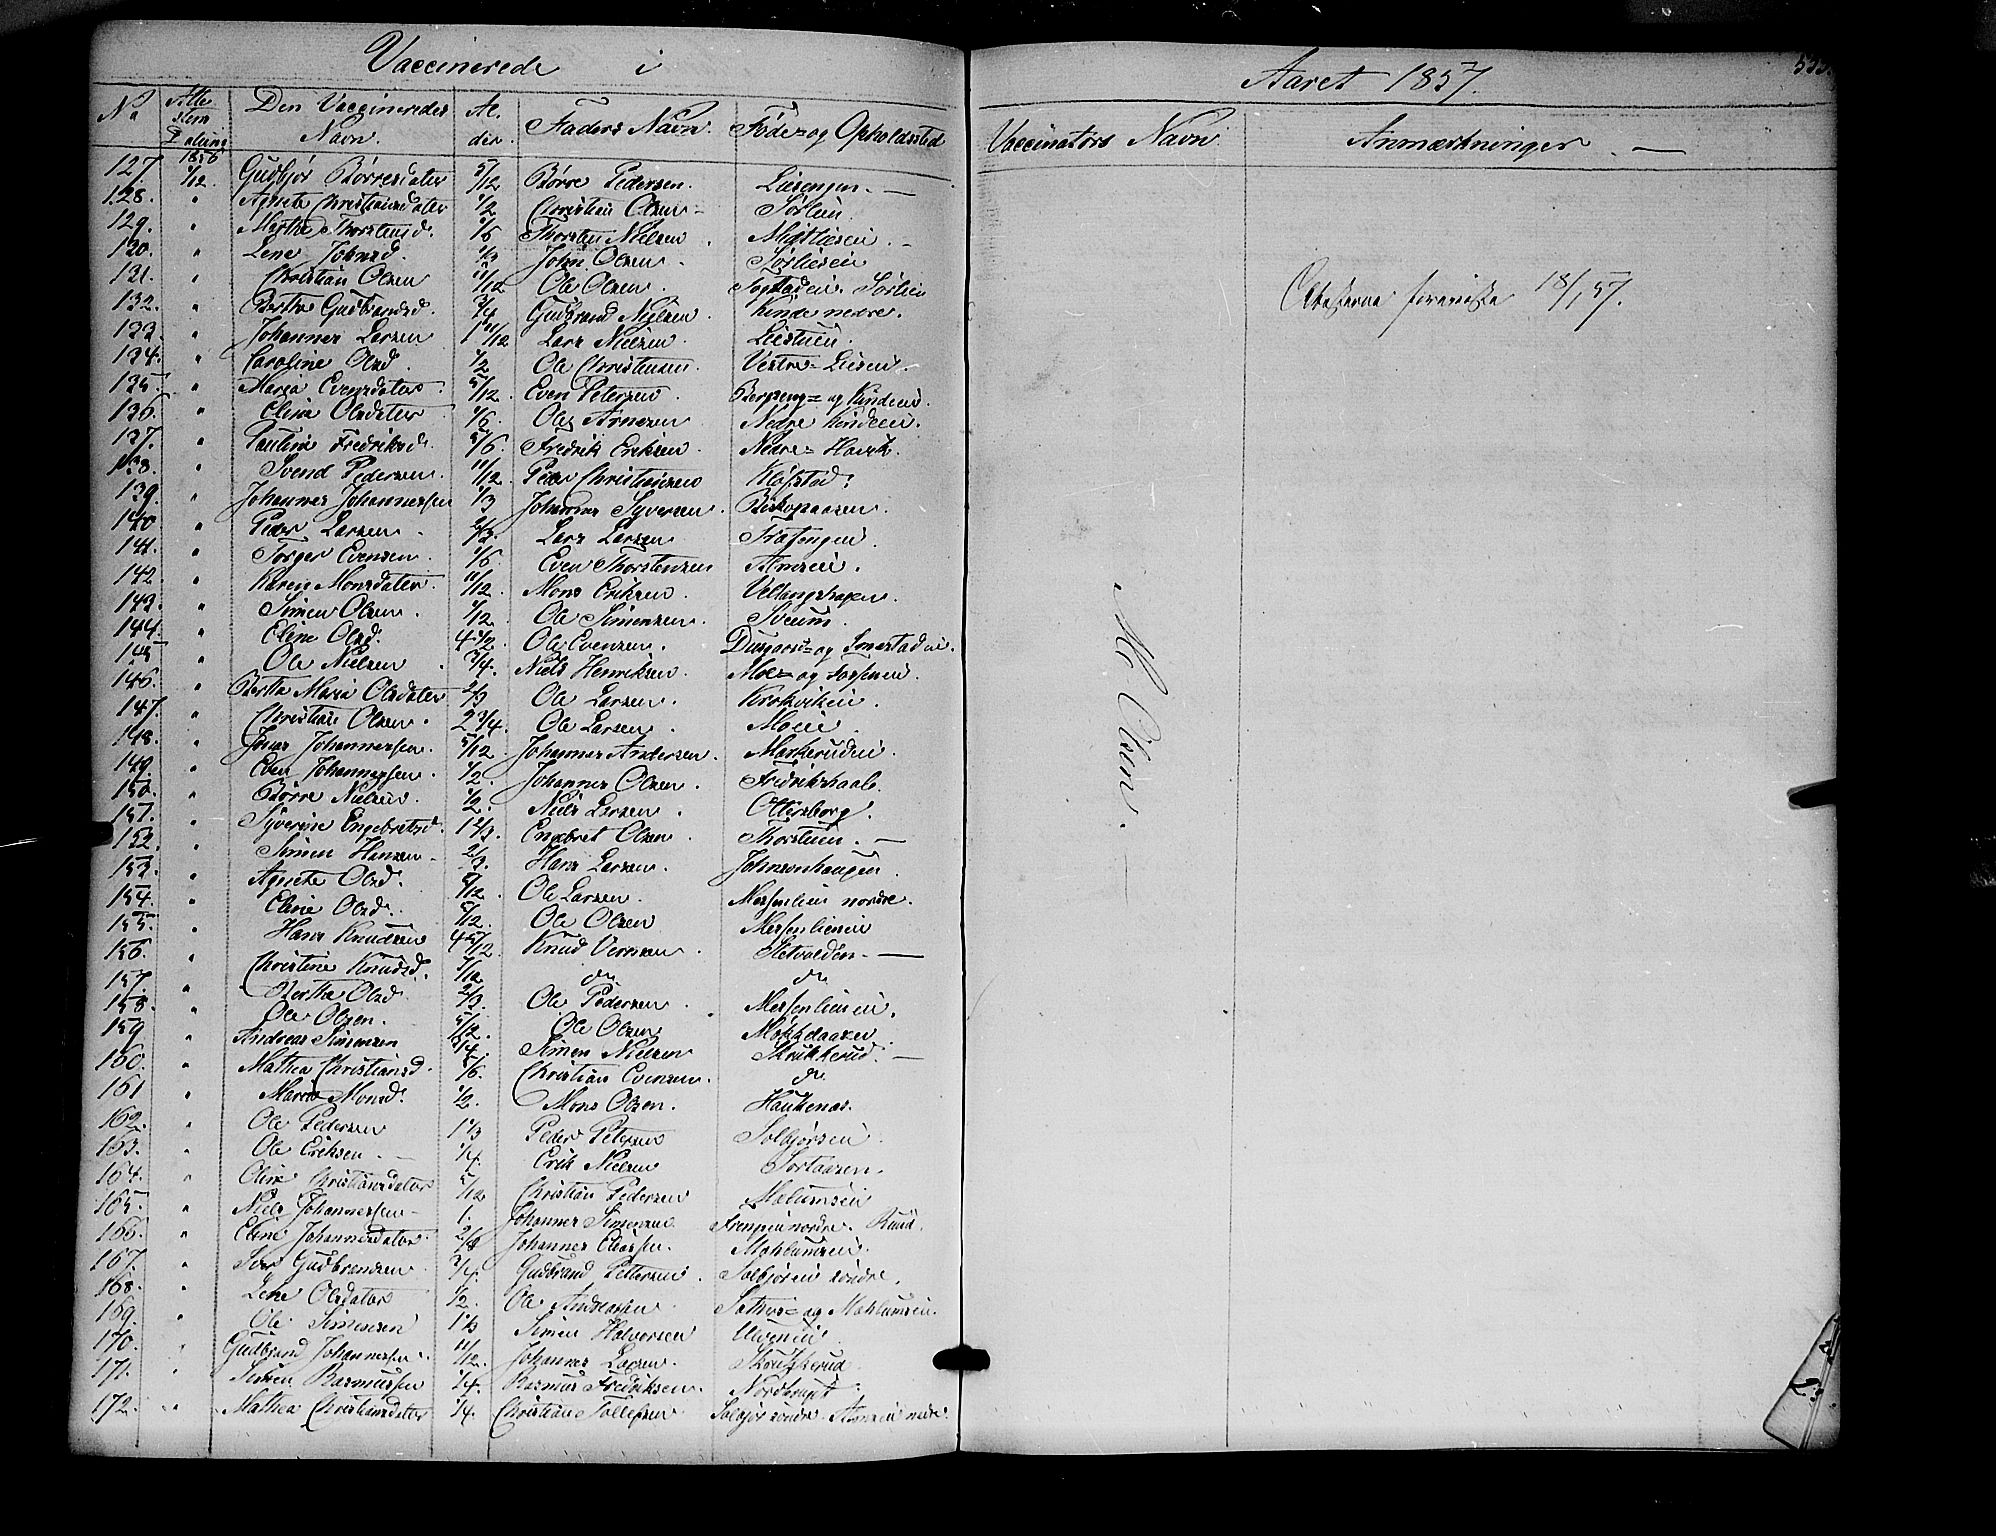 Vaccinerede i
Aaret 1857.
533.
No Attestens Dating Den Vaccineredes Navn. Alder. Faders Navn. Føde- og Opholdssted
Vaccinators Navn. Anmærkninger. —
127. 1856 1/12. Gudbjør Børresdater 5/12 Børre Pedersen. Liesengen. —
128. " Agnete Christiansdater 1/2 Christian Olsen - Sørlien.
129. " Marthe Thorstensd. 1/6 Thorsten Nielsen. Midtliesen. -
130. " Lene Johnsd. 1/3 John Olsen. Sørliesen
131. " Christian Olsen 11/12 Ole Olsen. Sørlien
132. " Berthe Gudbrandsd. 3/4 Gudbrand Nielsen. Kinde nedre.
133. " Johannes Larsen 1 11/12 Lars Nielsen. Liestuen.
134. " Caroline Olsd. 1/2 Ole Christiansen. Vestre-Liesen.
135. " Maria Evensdater. 5/12. Even Petersen. og Kindeie.
136. " Eline Olsdater 1/6. Ole Arnesen Nedre Kindeen.
137. " Pauline Fredriksd. 5/6. Fredrik Eriksen. Nedre-Hovrk.
138. " Svend Pedersen. 11/12. Peder Christiansen Kløfstad.
139. " Johannes Johannessen 1/3 Johannes Syversen. Biskopaasen.
140. " Peder Larsen. 2/3. Lars Larsen
141. " Torger Evensen. 1/6. Even Thorstensen Arnseie.
142. " Karen Monsdater. 11/12. Mons Eriksen. Vellangshagen.
143. " Simen Olsen. 1/12. Ole Simensen. Sveum.
144. " Eline Olsd. 4 1/2. Ole Evensen.
145. " Ole Nielsen. 3/4. Niels Henriksen. Moe- og
146. " Berthe Maria Olsdater 2/3 Ole Larsen. Krokvikeie.
147. " Christian Olsen. 2 3/4. Ole Larsen. Moeie.
148. " Jonas Johannessen. 5/12. Johannes Andersen. Maskerudeie.
149. " Even Johannessen. 1/2. Johannes Olsen. Fredrikshald.
150. " Børre Nielsen. 1/2. Niels Larsen. Ottersborg.
151. " Syverine Engebretsd. 1 2/3. Engebret Olsen. Thorstuen. —
152. " Simen Hansen. 2/3. Hans Larsen. Johnsonhaugen.
153. " Agnethe Olsd. 5/12. Ole Larsen. Messenlien nordre.
154. " Eline Olsd. 5/12. Ole Olsen Messenlieneie
155. " Hans Knudsen 4 5/12. Knud Vernsen. Sletvolden. —
156. " Christine Knudsd. 7/12 do do
157. " Berthe Olsd. 2/3. Ole Pedersen. Messenlieneie.
158. " Ole Olsen. 5/12. Ole Olsen
159. " Andreas Simensen 1/4. Simen Nielsen Skrukkerud. —
160. " Mathea Christiansd. 5/6. Christian Evensen. do
161 " Maren Monsd. 1/2. Mons Olsen. Haukenas.
162. " Ole Pedersen 1 1/3 Peder Petersen Solbjørseie.
163. " Ole Eriksen. 1/4. Erik Nielsen Sortaasen.
164. " Oline Christiansdater 5/12 Christian Pedersen Molumseie
165. " Niels Johannessen 1. Johannes Simensen. nordre. Ruud.
166. " Eline Johannesdater 2/3 Johannes Eliassen. Mohlumseie.
167. " Iver Gudbrandsen 3/4. Gudbrand Pettersen. Solbjøreie søndre.
168. " Lene Olsdater 1/2. Ole Andreassen. og Mohlumseie.
169. " Ole Simensen 1 1/3 Simen Halvorsen Ulveneie.
170. " Gudbrand Johannessen. 11/12. Johannes Larsen. Skrukkerud.
171. " Simen Rasmussen 1/4. Rasmus Fredriksen. Nordhaget.
172. " Mathea Christiansdater 1/4. Christian Tollefsen. Solbjør søndre. Arnseie nedre.
M. Olsen. —
Attesterne foreviste 18/1 57.